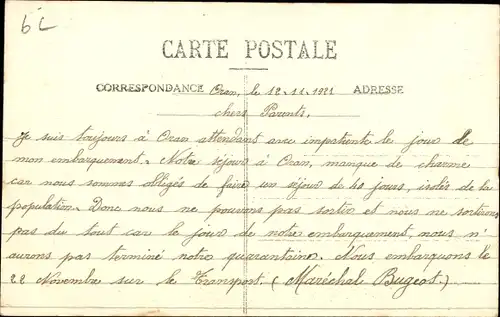 6 C
CARTE POSTALE
CORRESPONDANCE Oran, le 12.11.1921 ADRESSE
chers Parents,
Je suis toujours à Oran attendant avec impatiente le jour de
mon embarquement. Notre séjour à Oran, manque de charme
car nous sommes obligés de faire un séjour de 40 jours, isolés de la
population. Donc nous ne pouvons pas sortir et nous ne sortirons
pas du tout car le jour de notre embarquement, nous n'
aurons pas terminé notre quarantaine. Nous embarquons le
22 Novembre sur le Transport. (Maréchal Bugeot.)